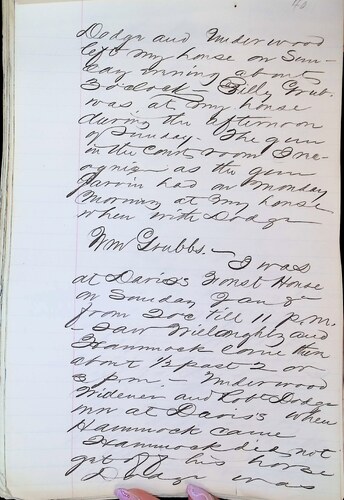 Dodge and Underwood
left my house on Sun-
day evning about
3 oclock – Billy Grub.
was at my house
during the afternoon
of Sunday. The gun
in the Court room I rec-
ognize as the gun
had on Monday
morning at my house
when with Dodge
Wm Grubbs. – I was
at Davis's House
on Sunday Jany
from 2 oc till 11 p.m.
– I saw Willoughby and
Hammock come then
about ½ past 2 or
3 p.m. – Underwood
Widener and Robt Dodge
at Davis's when
Hammock came
Hammock did not
get off his horse
Dodge was